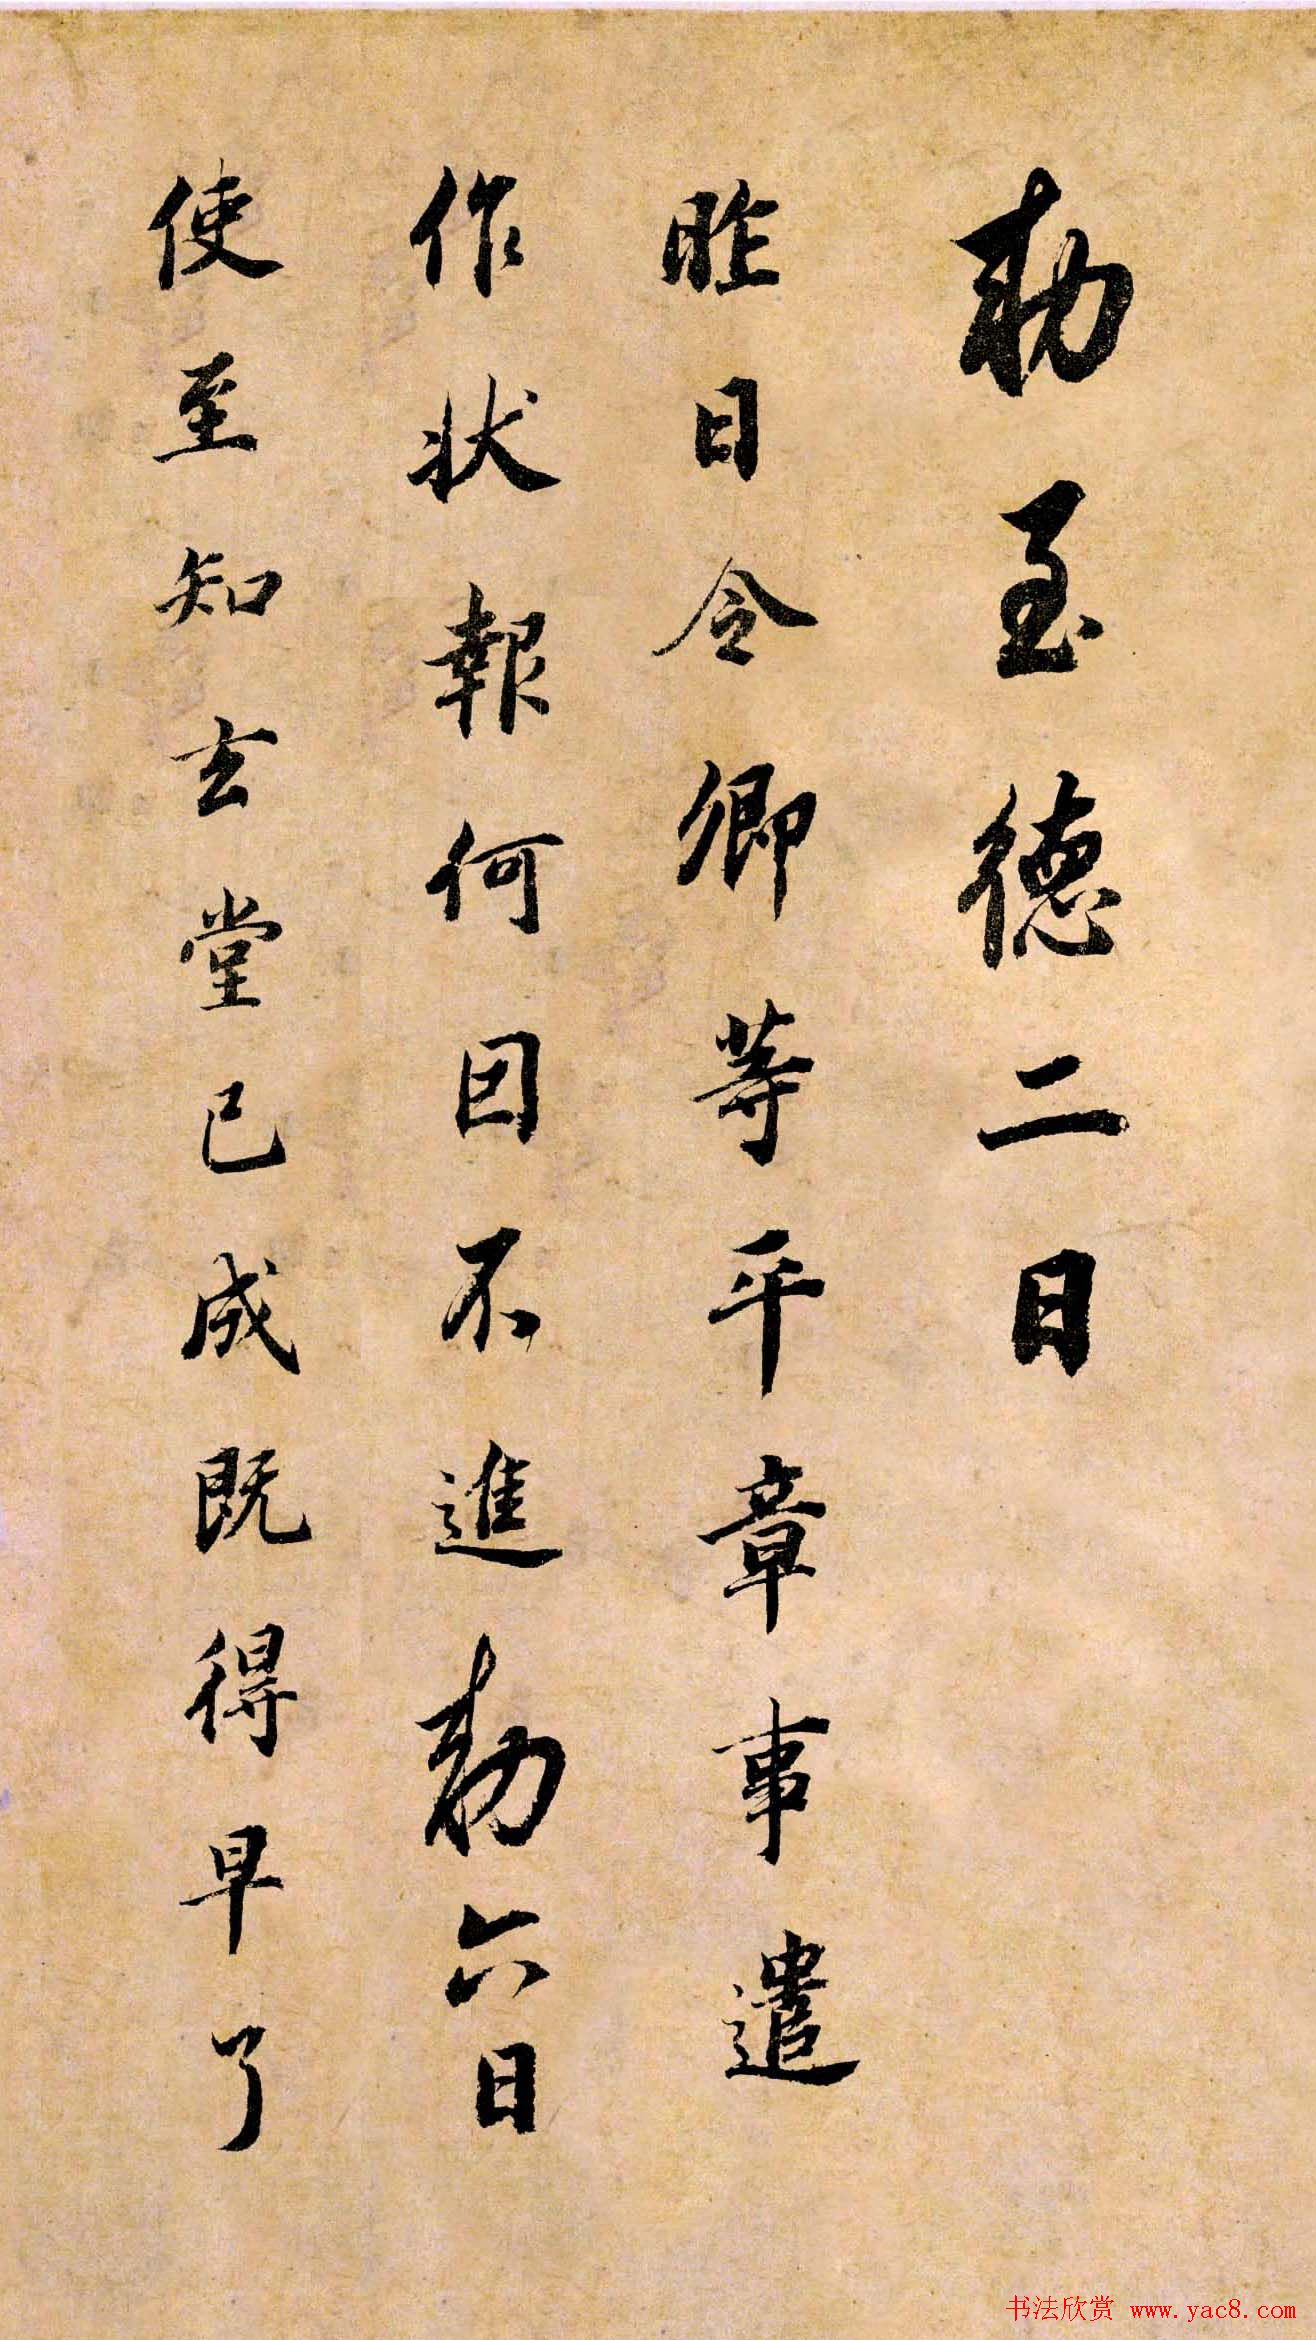 勅至德二日
昨日令卿等平章事遣
作狀報何因不進勅六日
使至知玄堂已成既得早了
书法欣赏 www.yac8.com